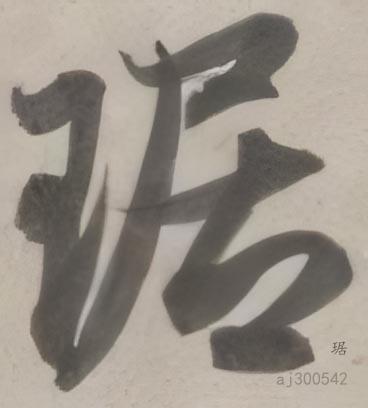 琚
琚
aj300542